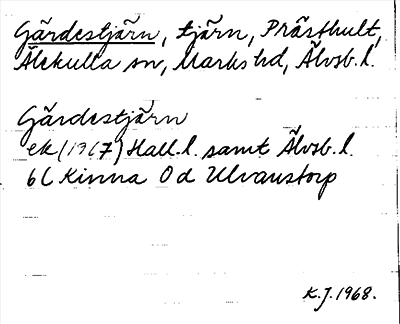 Gärdestjärn, tjärn, Prästhult,
Älekulla sn, Marks hd, Älvsb. l.
Gärdestjärn
ek (1967) Hall. l. samt Älvsb. l.
6C Kinna 0d Ulvanstorp
K.J. 1968.